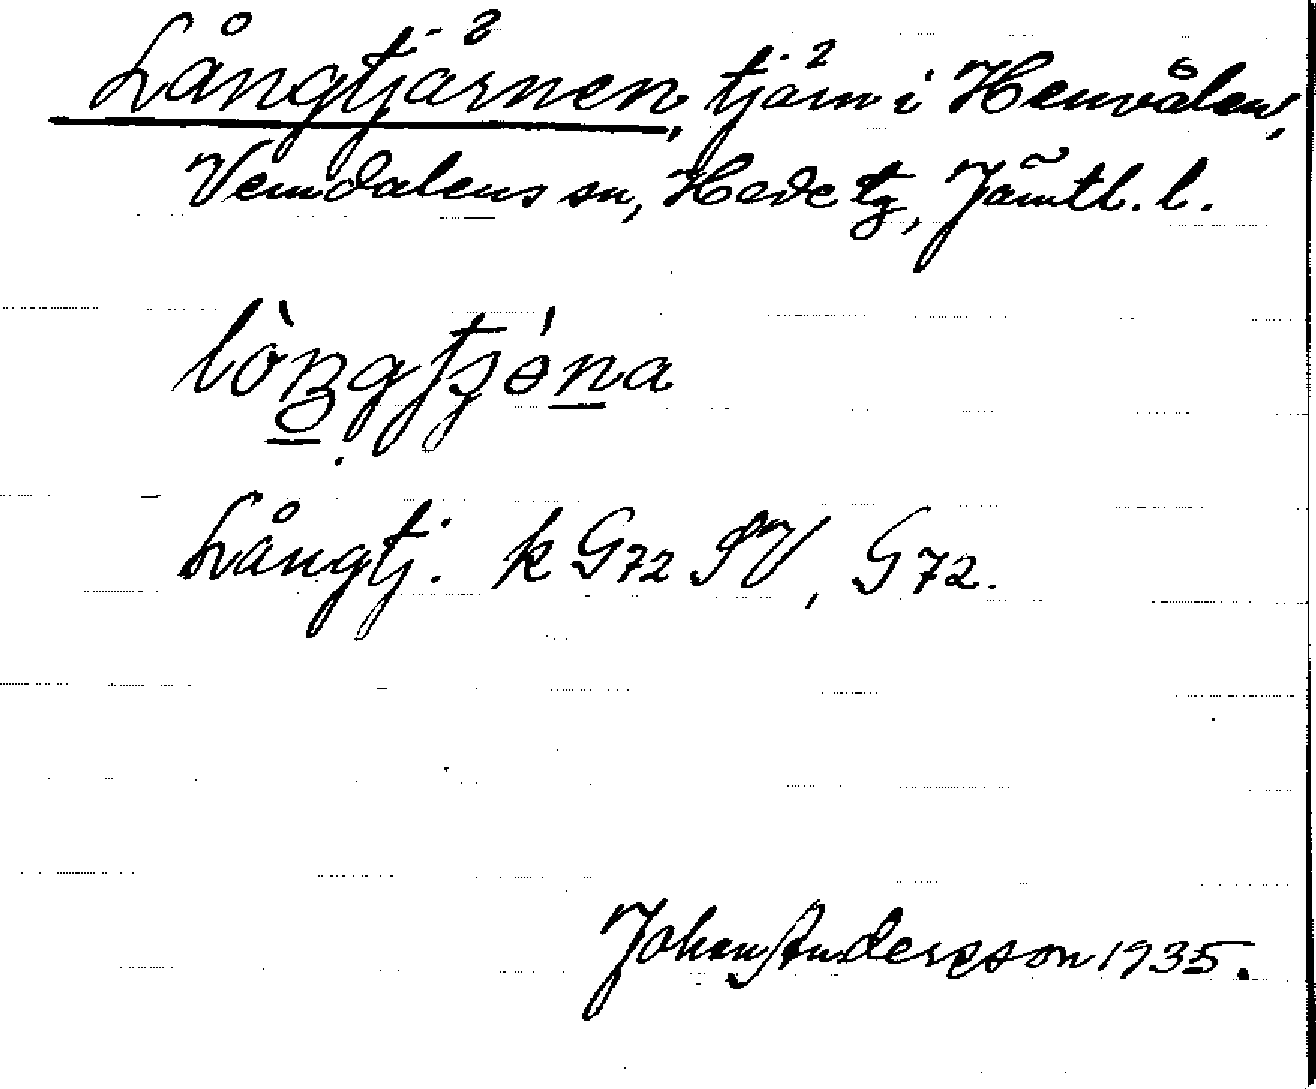 Långtjärnen, tjärn i Henvålen,
Vemdalens sn, Hede tg, Jämtl. l.
lòŋgtjéna
Långtj. k G72 SV, G72.
Johan Andersson 1935.